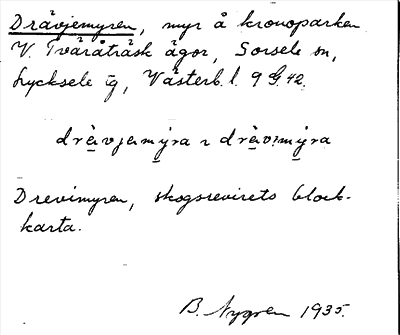 Drävjemyren, myr å kronoparken
V. Tvåråträsk ägor, Sorsele sn,
Lycksele tg, Västerb. l. 9 G 42.
drävjemýra ɿ drävimýra
Drevimyren, skogsrevirets block-
karta.
B. Nygren 1935.